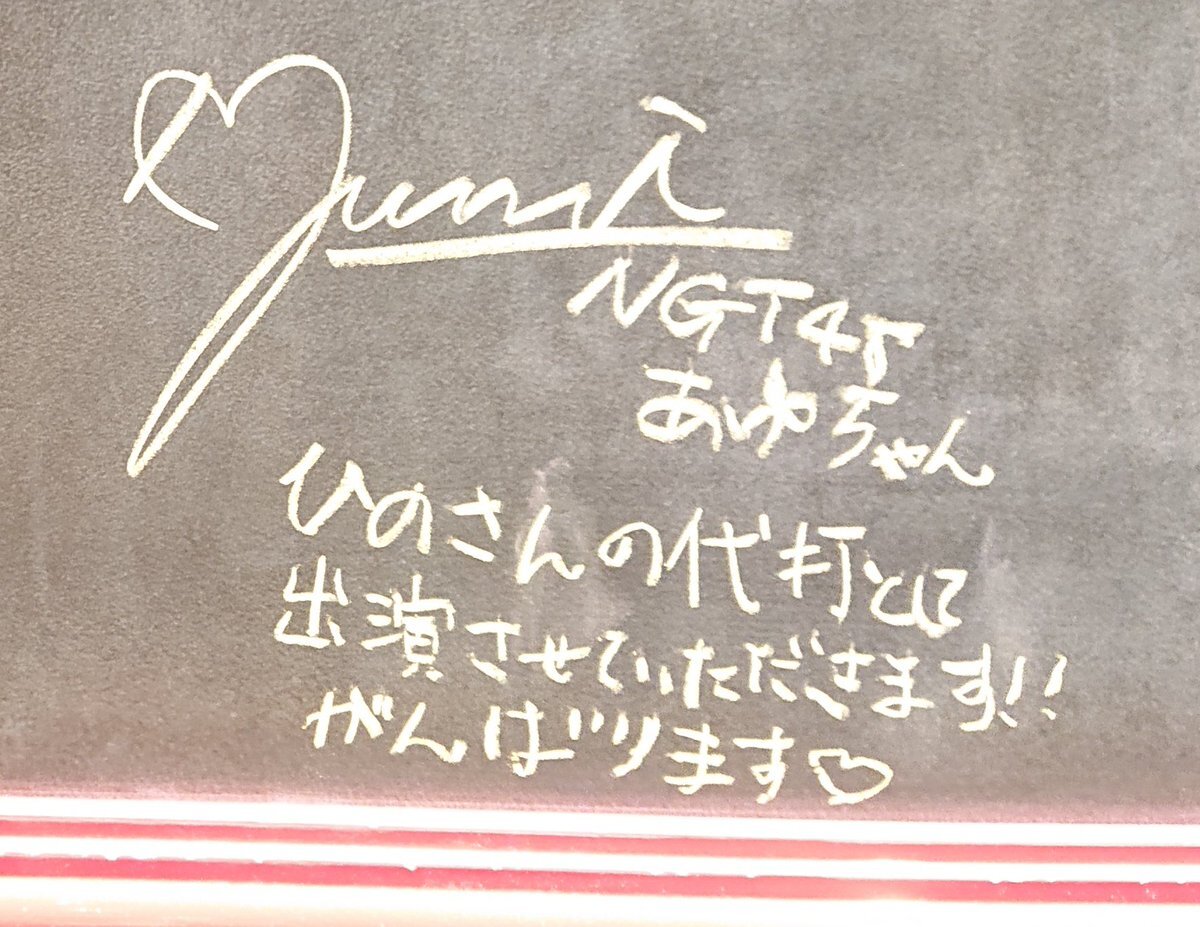 Yumi
NGT48
あゆちゃん
ひのさんの代打として
出演させていただきます!!
がんばります♡